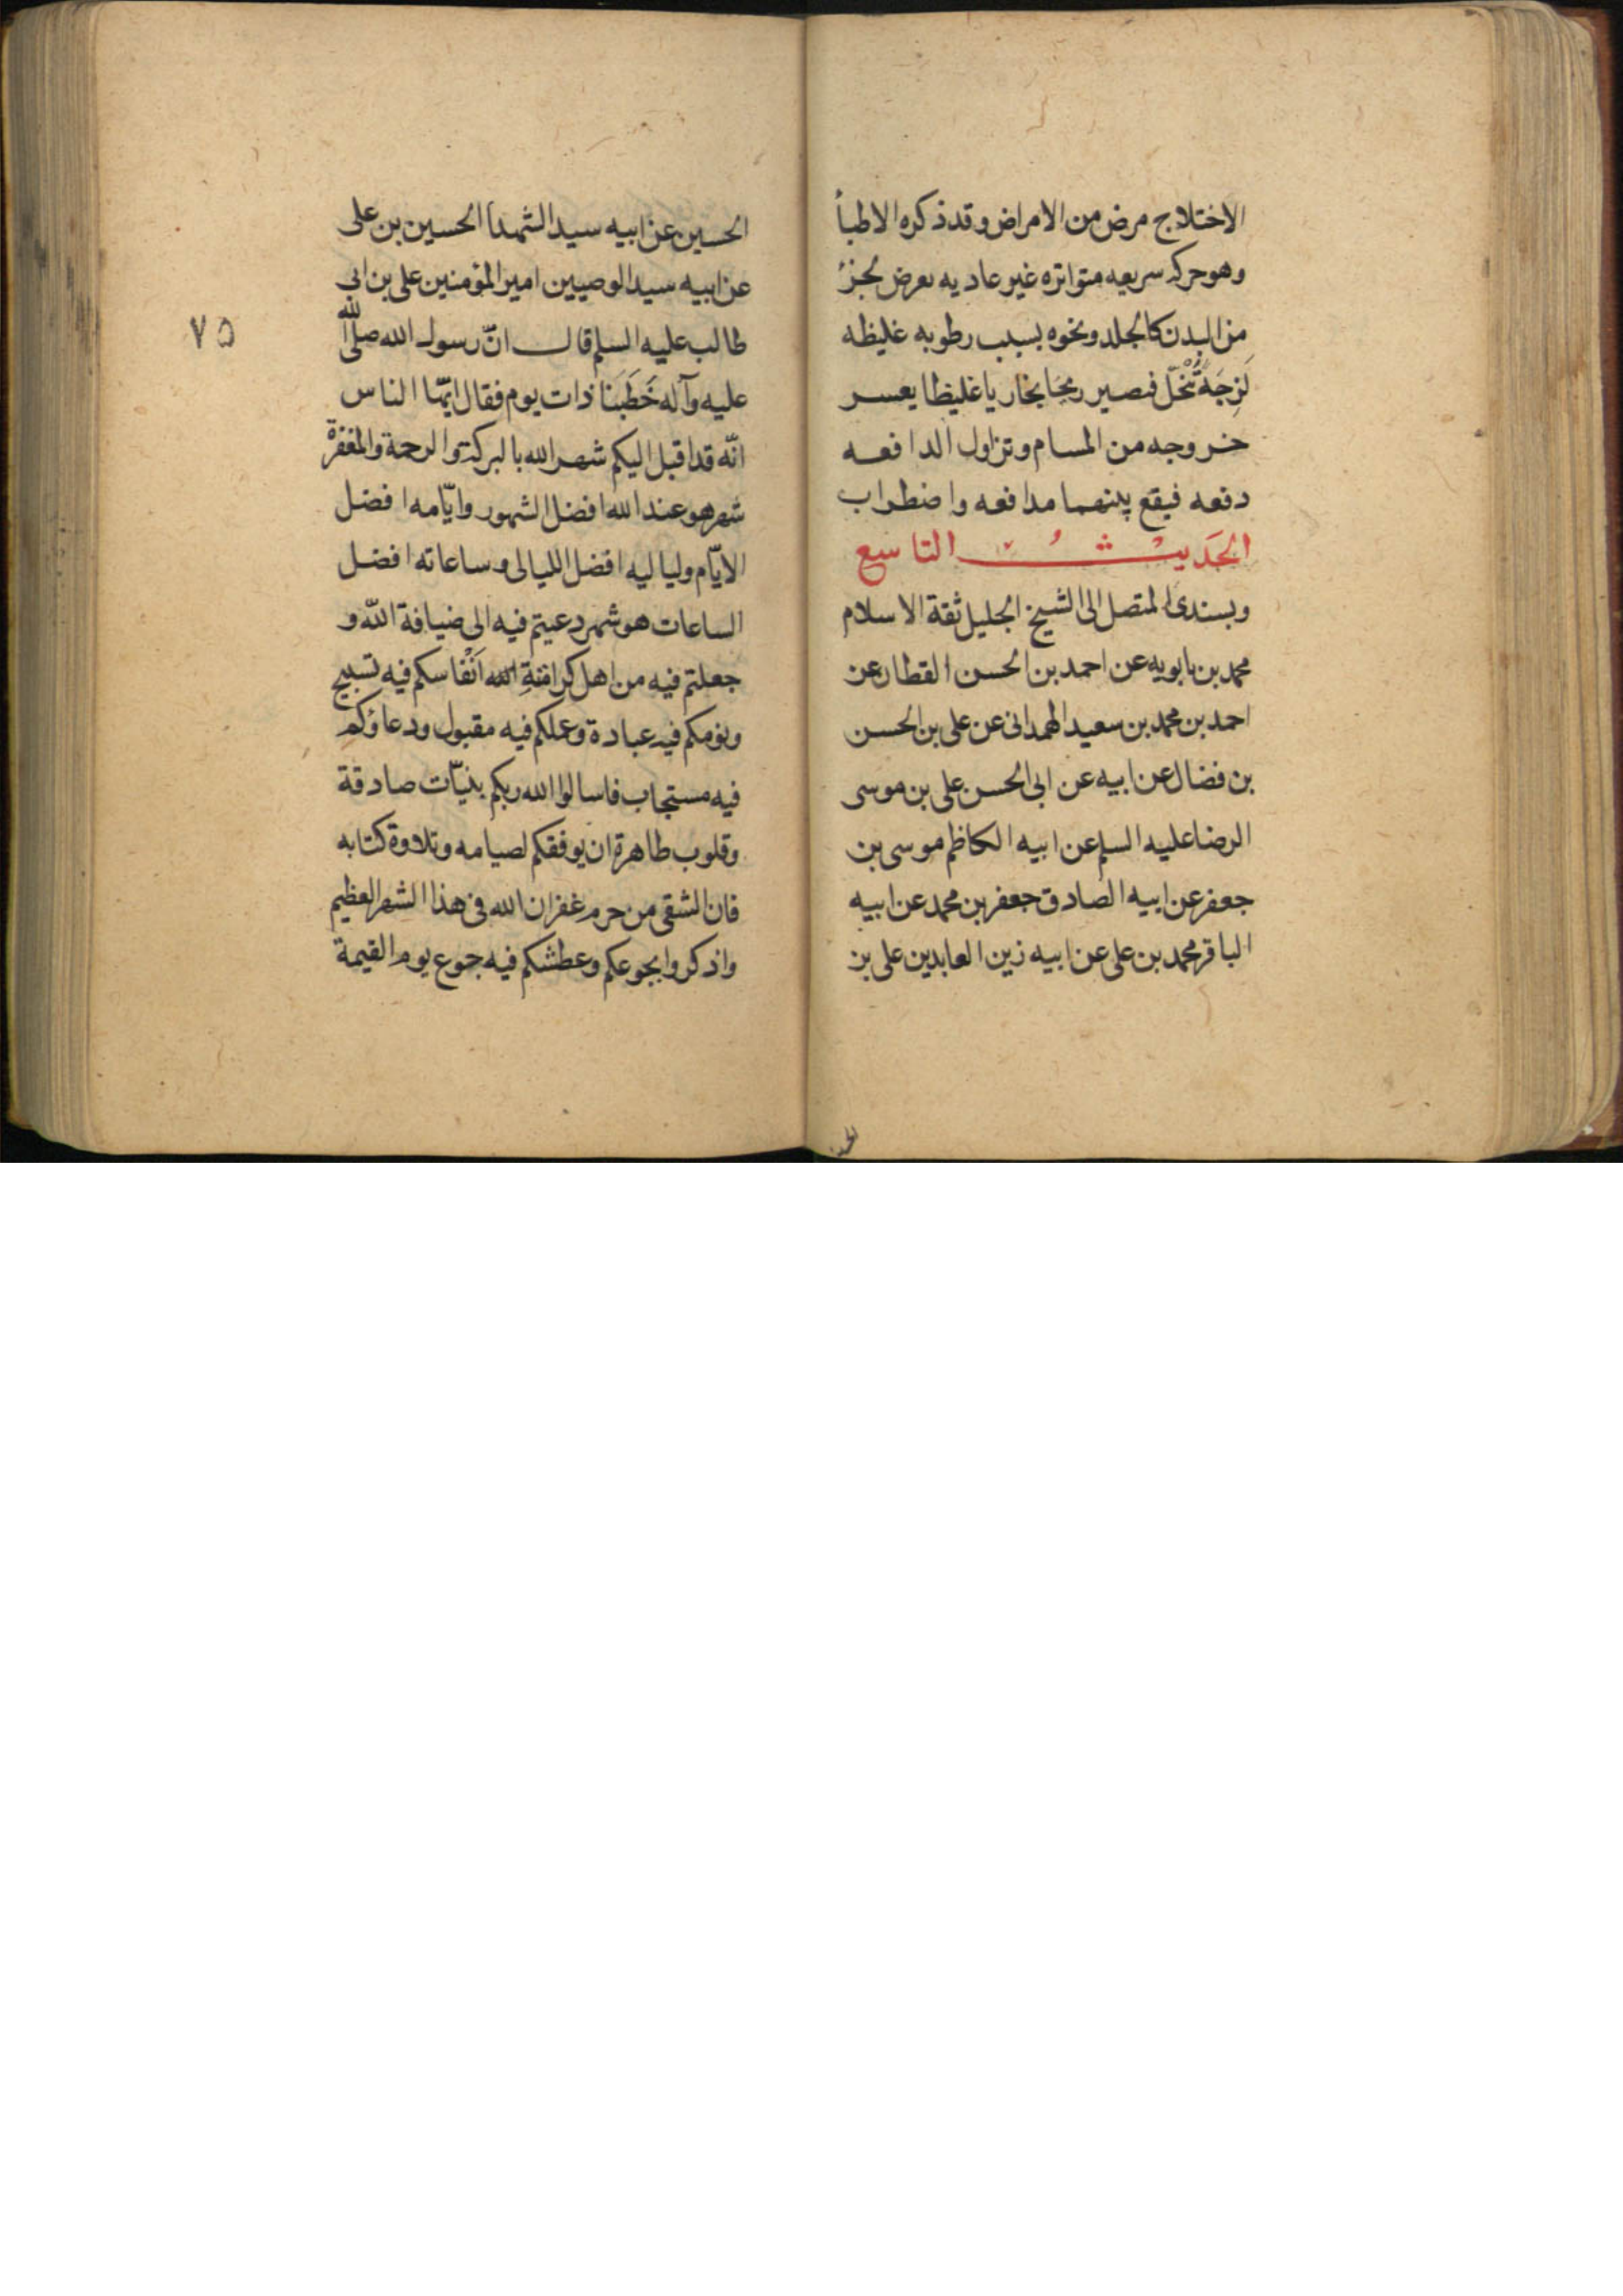 الاختلاج مرض من الامراض وقد ذكره الاطبأ
وهو حركه سريعه متواتره غير عاديه يعرض لجزء
من البدن كالجلد ونحوه بسبب رطوبه غليظه
لَزِجَة تنحلّ فيصير ريحا بخاريا غليظا يعسر
خروجه من المسام وتزاول الدافعه
دفعه فيقع بينهما مدافعه واضطراب
الحَديثُ التاسع
وبسندى المتصل الى الشيخ الجليل ثقة الاسلام
محمد بن بابويه عن احمد بن الحسن القطان عن
احمد بن محمد بن سعيد الهمدانى عن على بن الحسن
بن فضال عن ابيه عن ابى الحسن على بن موسى
الرضا عليه السلم عن ابيه الكاظم موسى بن
جعفر عن ابيه الصادق جعفر بن محمد عن ابيه
الباقر محمد بن على عن ابيه زين العابدين على بن
الحسين عن ابيه سيد الشهدا الحسين بن على
عن ابيه سيد الوصيين امير المؤمنين على بن ابى
طالب عليه السلم قال انّ رسول الله صلّى الله
٧٥
عليه وآله خَطَبَنا ذات يوم فقال ايّها الناس
انّه قد اقبل اليكم شهر الله بالبركة والرحمة والمغفرة
شهر هو عند الله افضل الشهور وايّامه افضل
الايّام ولياليه افضل الليالى وساعاته افضل
الساعات هو شهر دعيتم فيه الى ضيافة اللّه و
جعلتم فيه من اهل كرامةِ الله اَنْفاسكم فيه تسبيح
ونومكم فيه عبادة وعملكم فيه مقبول ودعاؤكم
فيه مستجاب فاسالوا الله ربكم بنيّات صادقة
وقلوب طاهرة ان يوفقكم لصيامه وتلاوة كتابه
فان الشقى من حرم غفران الله فى هذا الشهر العظيم
واذكروا بجوعكم وعطشكم فيه جوع يوم القيمة